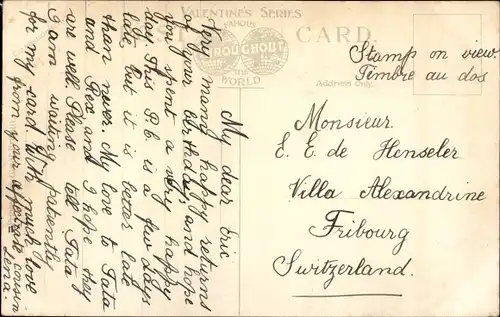 VALENTINE'S SERIES
FAMOUS
THROUGHOUT
THE
WORLD
CARD.
Address Only.
My dear Eric
Very many happy returns
of your birthday, and hope
you spent a very happy
day. This P.C. is a few days
late, but it is better late
than never. My love to Tata
and Rex, and I hope they
are well. Please tell Tata
I am waiting patiently
for my card. With much love
from your affectionate cousin
Lena.
Stamp on view.
Timbre au dos
Monsieur.
E. E. de Henseler
Villa Alexandrine
Fribourg
Switzerland.